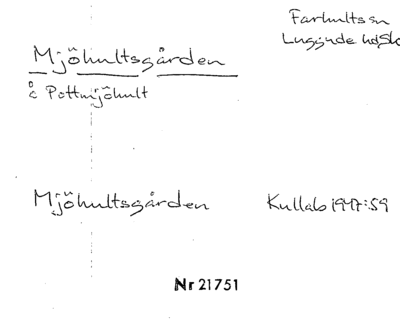 Farhults sn
Luggude hd, Sk
Mjöhultsgården
å Pottmjöhult
Mjöhultsgården Kullab 1947:59
Nr 21751